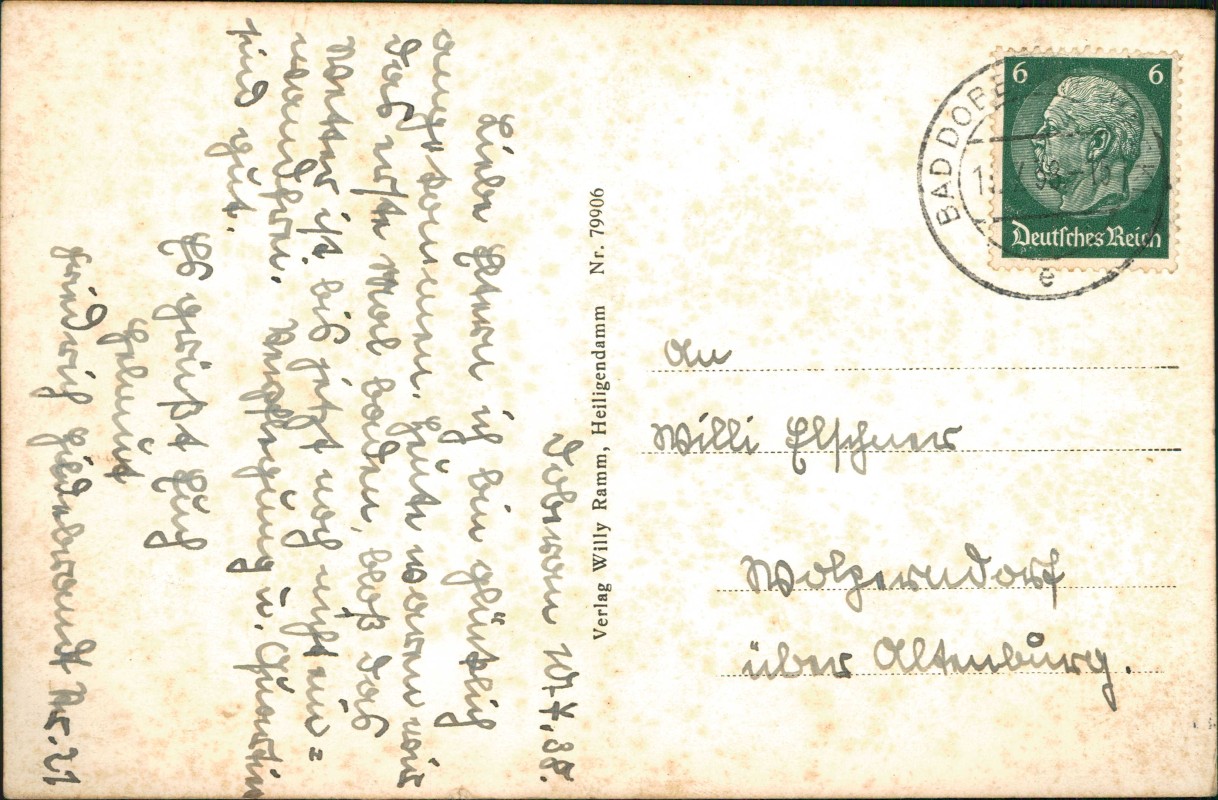 6 6
BAD DOBE
Deutsches Reich
e
An
Willi Elschner
Wolperndorf
über Altenburg.
Verlag Willy Ramm, Heiligendamm Nr. 79906
Doberan 7. 38.
Liebe Eltern ich bin glücklich
angekommen. Heute waren wir
das erste Mal baden, bloß das
Wetter ist bis jetzt noch nicht ein=
wandfrei. Verpflegung u. Quartier
sind gut.
Es grüßt Euch
Helmut
Friedrich Hildebrandt Str. 21